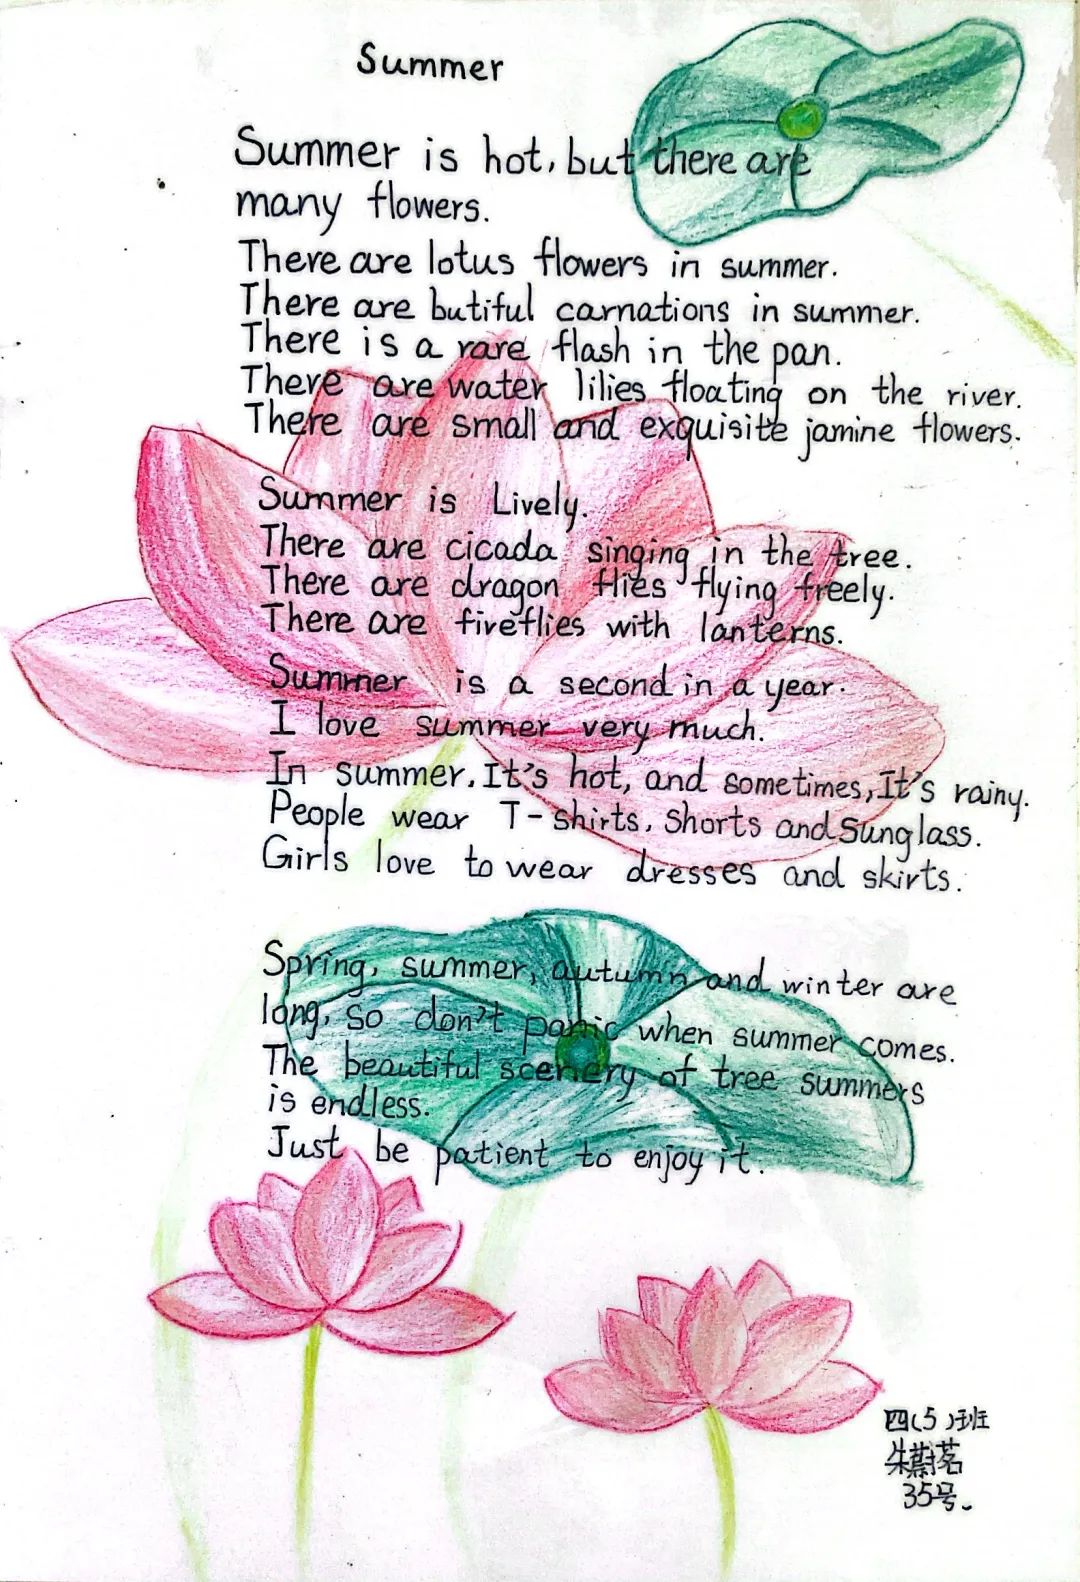 Summer
Summer is hot, but there are
many flowers.
There are lotus flowers in summer.
There are butiful carnations in summer.
There is a rare flash in the pan.
There are water lilies floating on the river.
There are small and exquisite jamine flowers.
Summer is Lively.
There are cicada singing in the tree.
There are dragon flies flying freely.
There are fireflies with lanterns.
Summer is a second in a year.
I love summer very much.
In summer, It's hot, and sometimes, It's rainy.
People wear T-shirts, Shorts and Sunglass.
Girls love to wear dresses and skirts.
Spring, summer, autumn and winter are
long, so don't panic when summer comes.
The beautiful scenery of tree summers
is endless.
Just be patient to enjoy it.
四(5)班
朱蔚茗
35号.